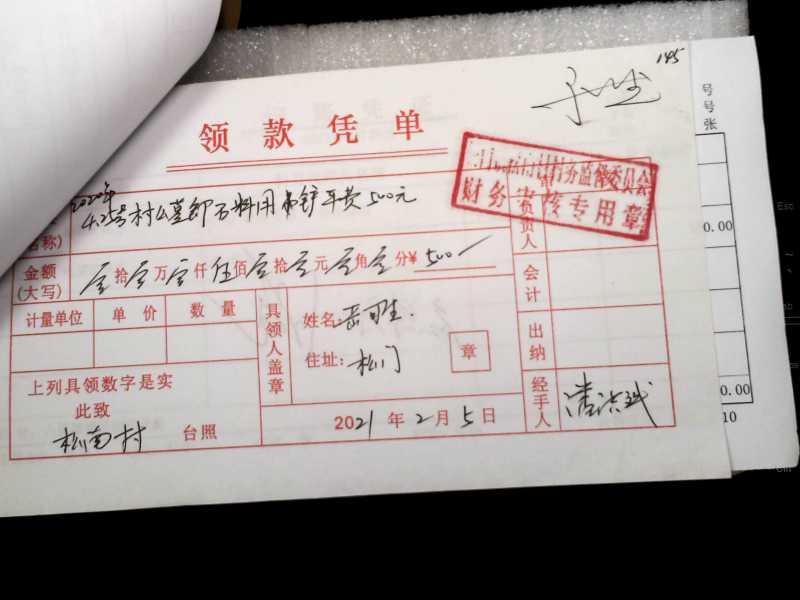 145
领款凭单
2020年
4.25号村公墓卸石料用吊铲车费500元
名称)
务监督委员会
财务审核专用章
负责人
金额
(大写)
零拾零万零仟伍佰零拾零元零角零分¥500
计量单位 单价 数量
具领人盖章
姓名:
住址:松门
章
会计
出纳
经手人
上列具领数字是实
此致
松南村 台照
2021年2月5日
号
号
张
0.00
0.00
10